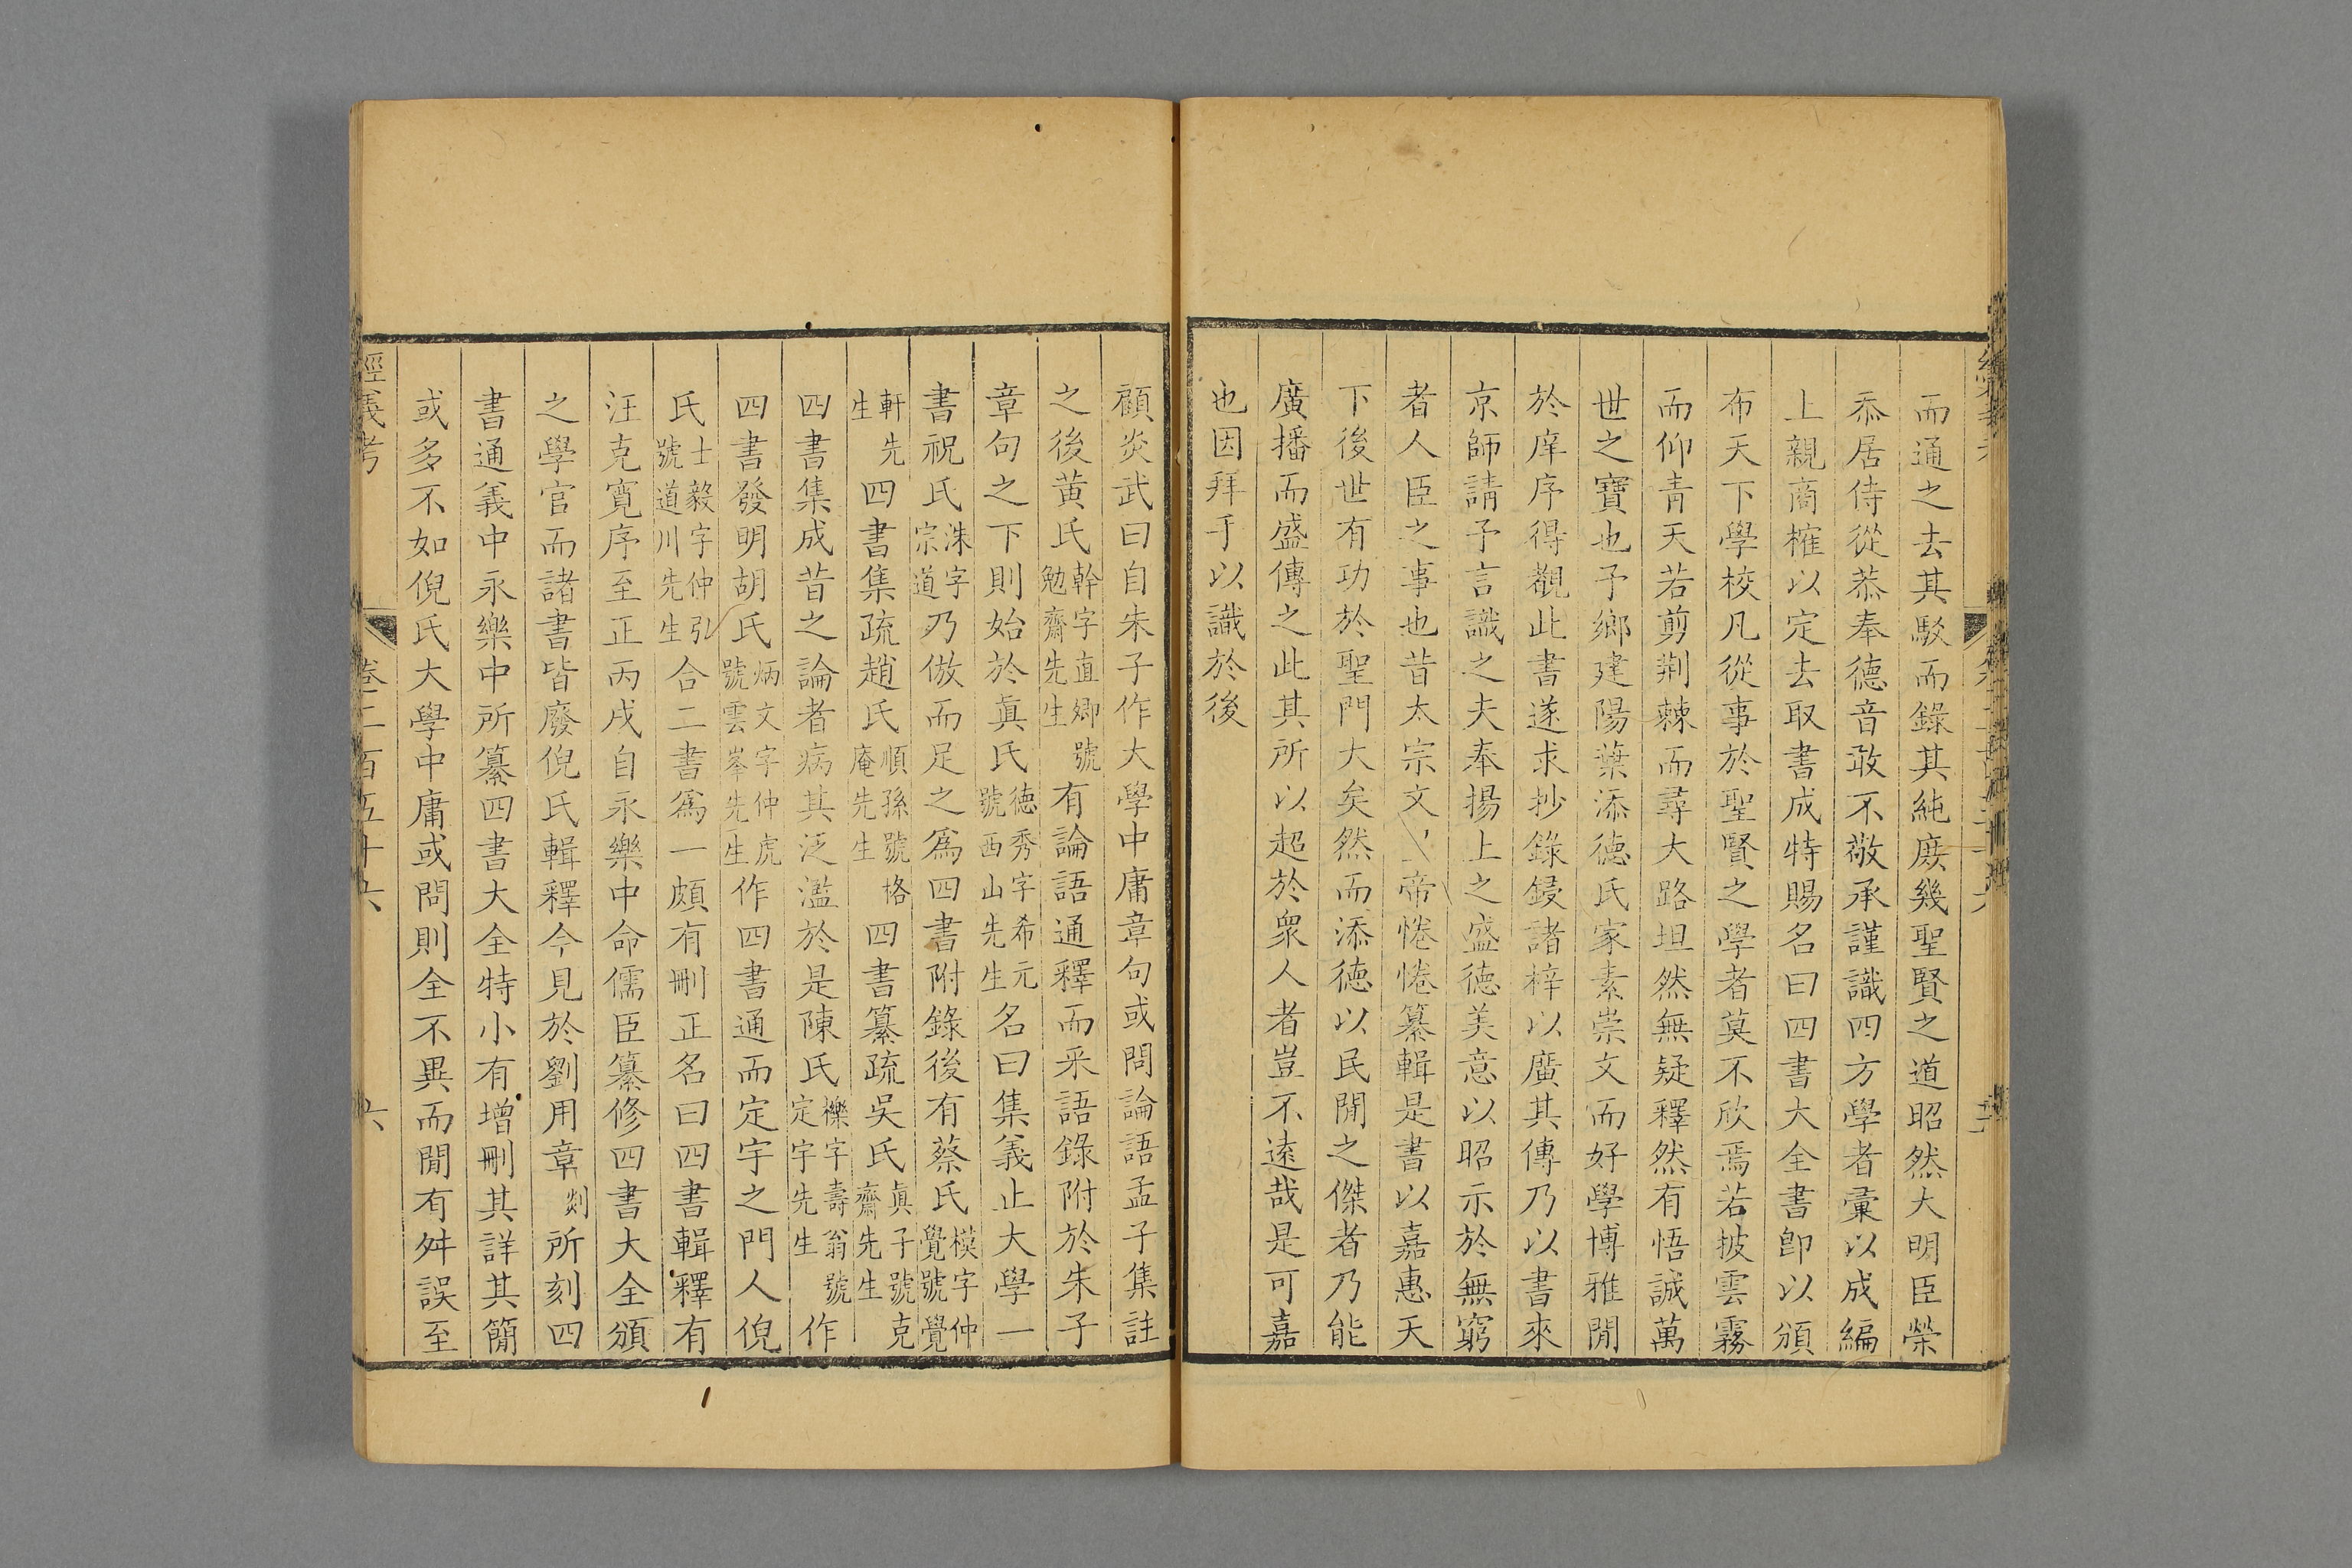 而通之去其駁而錄其純庻幾聖賢之道昭然大明臣榮
忝居侍從恭奉德音敢不敬承謹識四方學者彚以成編
上親商榷以定去取書成特賜名曰四書大全書即以頒
布天下學校凡從事於聖賢之學者莫不欣焉若披雲霧
而仰青天若剪荆棘而尋大路坦然無疑釋然有悟誠萬
世之寶也予鄉建陽葉添德氏家素崇文而好學博雅閒
於庠序得觀此書遂求抄錄鋟諸梓以廣其傳乃以書來
京師請予言識之夫奉揚上之盛德美意以昭示於無窮
者人臣之事也昔太宗文帝惓惓纂輯是書以嘉惠天
下後世有功於聖門大矣然而添德以民閒之傑者乃能
廣播而盛傳之此其所以超於衆人者豈不遠哉是可嘉
也因拜手以識於後
顧炎武曰自朱子作大學中庸章句或問論語孟子集註
之後黄氏幹字直卿號勉齋先生有論語通釋而采語錄附於朱子
章句之下則始於真氏德秀字希元號西山先生名曰集義止大學一
書祝氏洙字宗道乃倣而足之爲四書附錄後有蔡氏模字仲覺號覺
軒先生四書集疏趙氏順孫號格庵先生四書纂疏吳氏真子號克齋先生
四書集成昔之論者病其泛濫於是陳氏櫟字壽翁號定宇先生作
四書發明胡氏炳文字仲虎號雲峯先生作四書通而定宇之門人倪
氏士毅字仲弘號道川先生合二書爲一頗有刪正名曰四書輯釋有
汪克寬序至正丙戌自永樂中命儒臣纂修四書大全頒
之學官而諸書皆廢倪氏輯釋今見於劉用章剡所刻四
書通義中永樂中所纂四書大全特小有增刪其詳其簡
或多不如倪氏大學中庸或問則全不異而閒有舛誤至
經義考 卷二百五十六 六